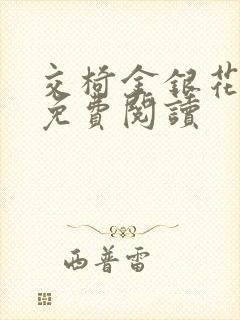 交椅金銀花
免費閱讀
西普雷